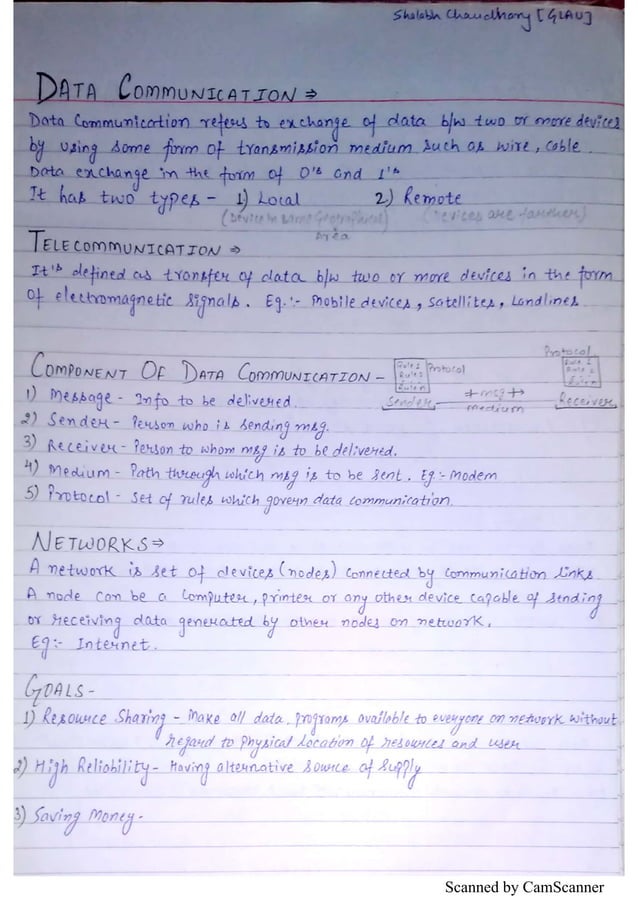 Shalabh Chaudhary [GLAU]
DATA COMMUNICATION ⇒
Data Communication refers to exchange of data b/w two or more devices
by using some form of transmission medium such as wire, cable.
Data exchange in the form of 0's and 1's
It has two types - 1) Local 2) Remote
(Device in same Geographical) (Devices are farther)
Area
TELECOMMUNICATION ⇒
It's defined as transfer of data b/w two or more devices in the form
of electromagnetic signals. Eg.:- Mobile devices, Satellites, Landlines.
COMPONENT OF DATA COMMUNICATION -
Rule 1
Rule 2
Rule n
Protocol
Sender
←msg→
medium
Protocol
Rule 1
Rule 2
Rule n
Receiver
1) Message - Info to be delivered.
2) Sender - Person who is sending msg.
3) Receiver - Person to whom msg is to be delivered.
4) Medium - Path through which msg is to be sent. Eg:- Modem
5) Protocol - Set of rules which govern data communication.
NETWORKS ⇒
A network is set of devices (nodes) connected by communication links.
A node can be a Computer, printer or any other device capable of sending
or receiving data generated by other nodes on network.
Eg:- Internet.
GOALS -
1) Resource Sharing - Make all data, programs available to everyone on network without
regard to physical location of resources and user
2) High Reliability - Having alternative source of supply
3) Saving Money -
Scanned by CamScanner